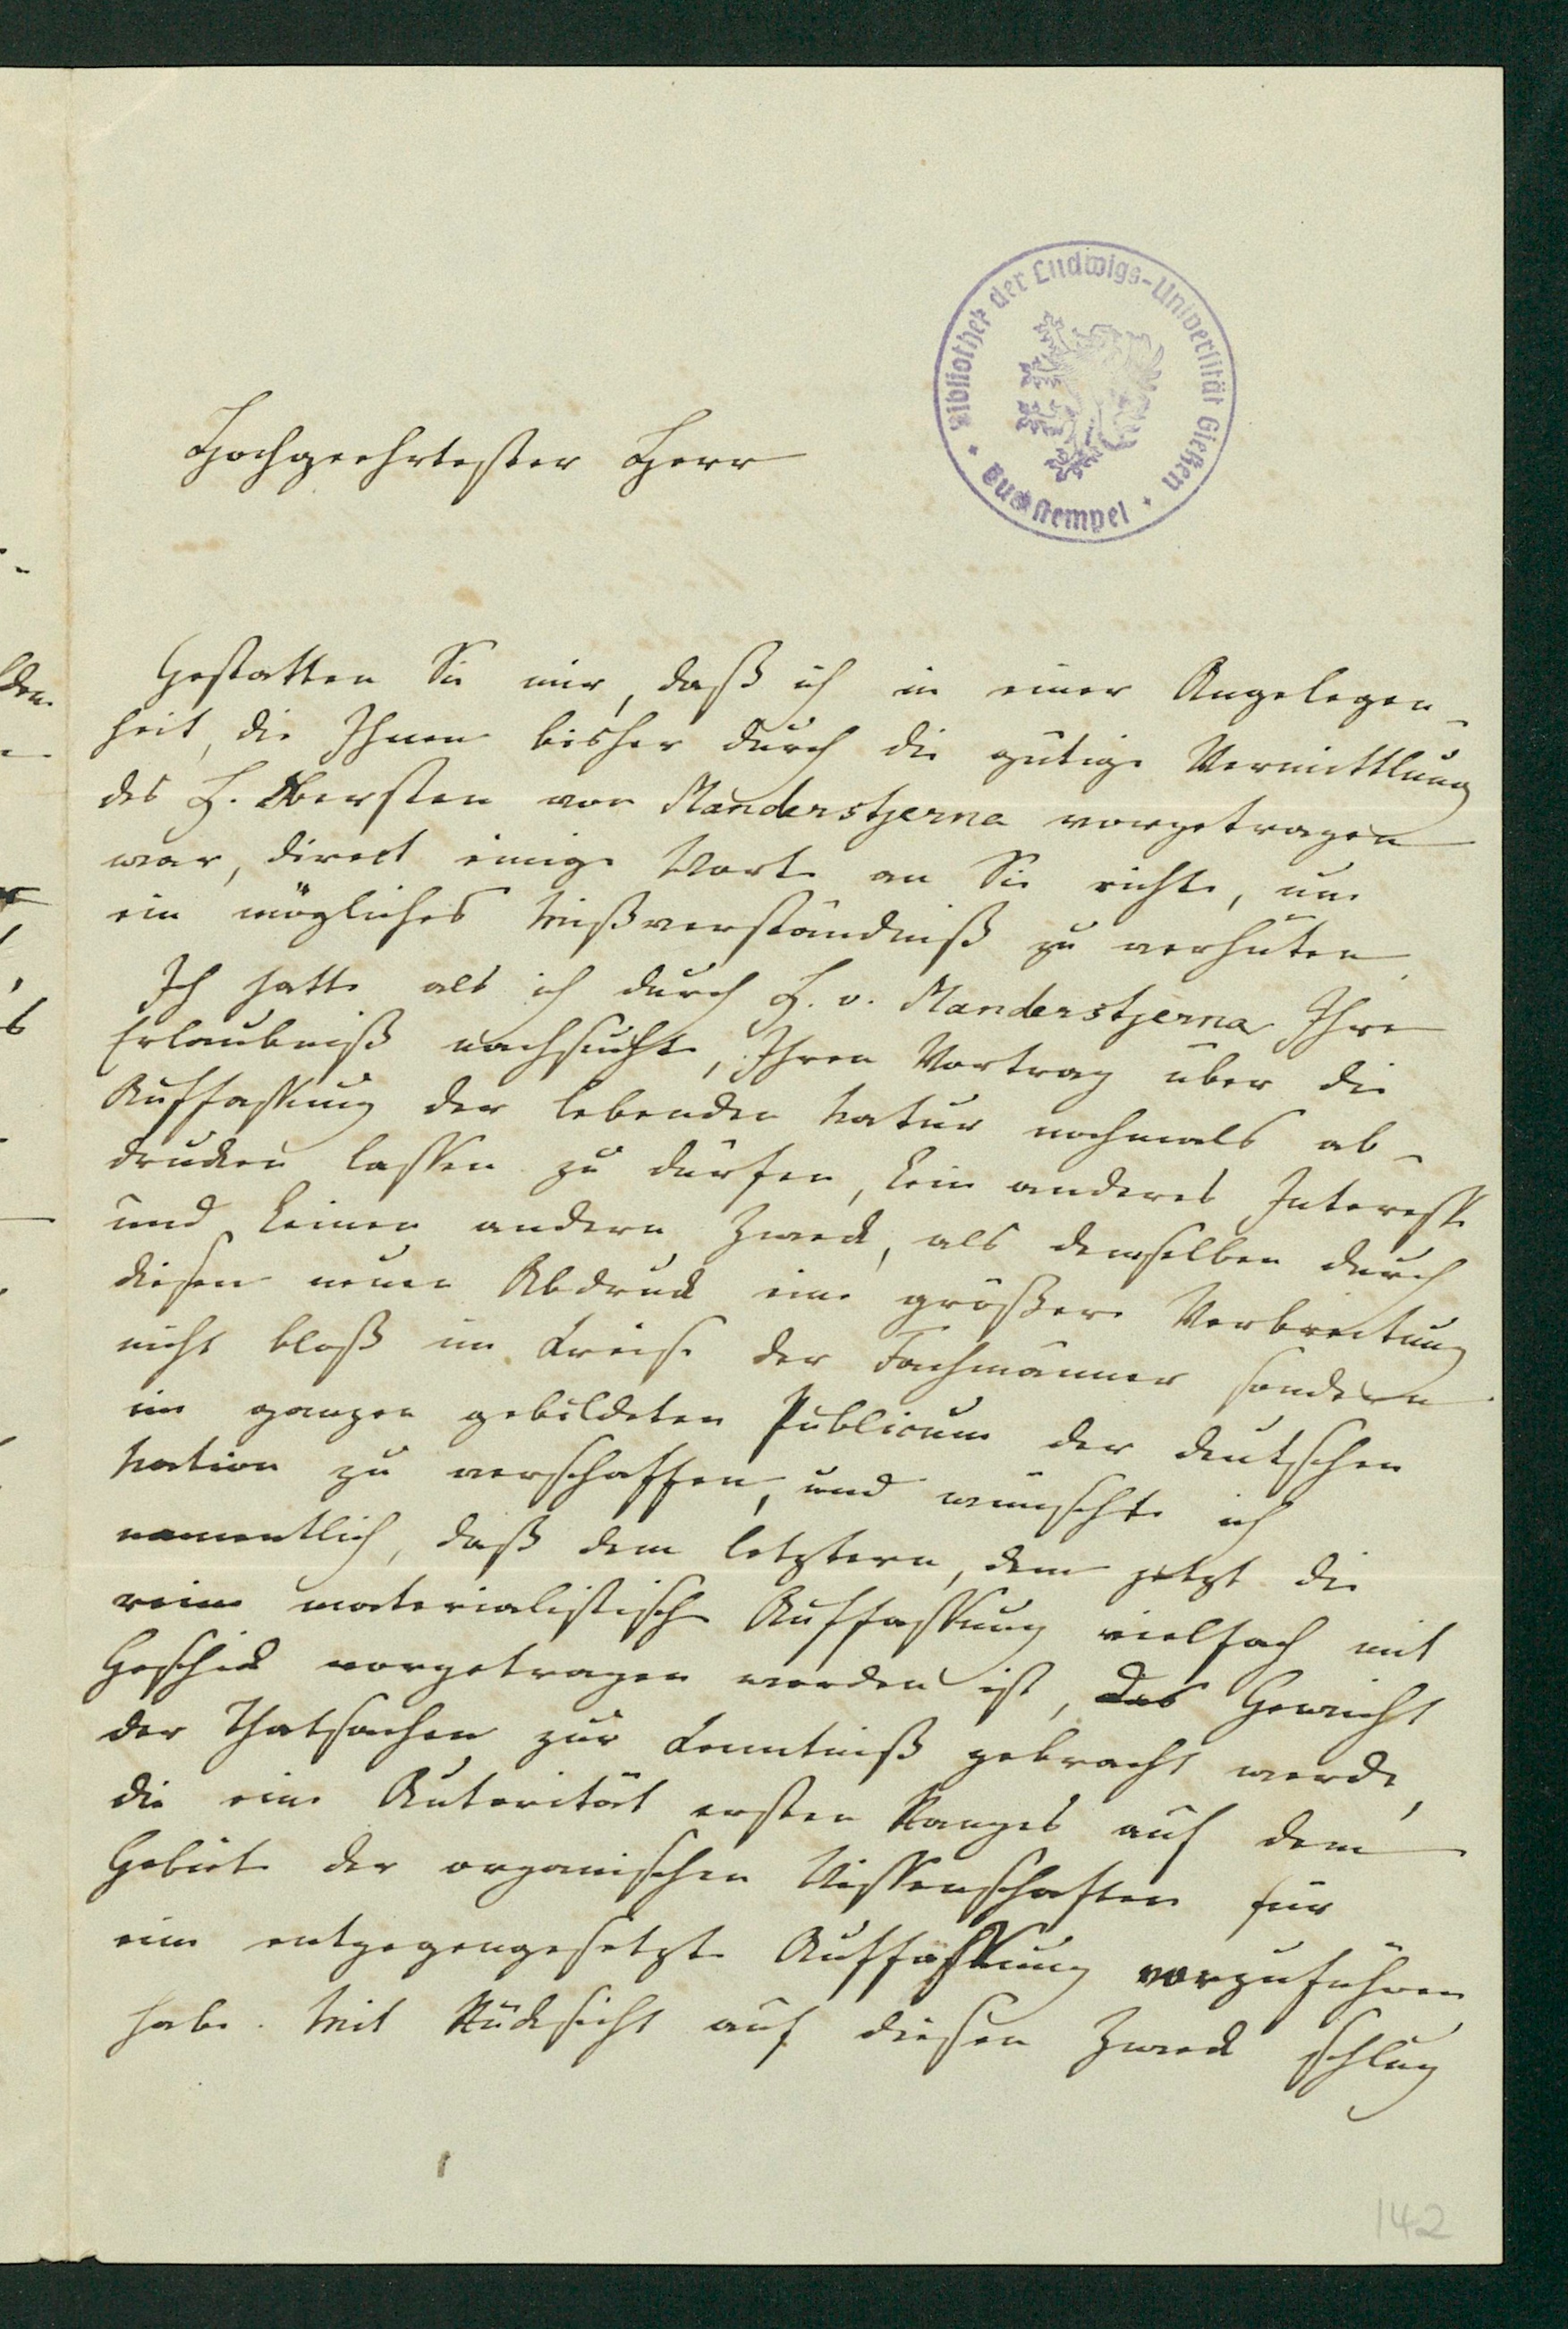 Bibliothek der Ludwigs-Universität Gießen
Buchstempel
Hochgeehrtester Herr
Gestatten Sie mir, daß ich in einer Angelegen-
heit, die Ihnen bisher durch die gütige Vermittlung
des H. Obersten von Manderstjerna vorgetragen
war, direct einige Worte an Sie richte, um
ein mögliches Mißverständniß zu verhüten.
Ich hatte als ich durch H. v. Manderstjerna Ihre
Erlaubniß nachsuchte, Ihren Vortrag über die
Auffassung der lebenden Natur nochmals ab-
drucken lassen zu dürfen, kein anderes Interesse
und keinen andern Zweck, als demselben durch
diesen neuen Abdruck eine größere Verbreitung
nicht bloß im Kreise der Fachmänner sondern
im ganzen gebildeten Publicum der deutschen
Nation zu verschaffen, und wünschte ich
namentlich, daß dem letztern, dem jetzt die
rein materialistische Auffassung vielfach mit
Geschick vorgetragen worden ist, das Gewicht
der Thatsachen zur Kenntniß gebracht werde,
die eine Autorität ersten Ranges auf dem
Gebiete der organischen Wissenschaften für
eine entgegengesetzte Auffassung vorzuführen
habe. Mit Rücksicht auf diesen Zweck schlug
142